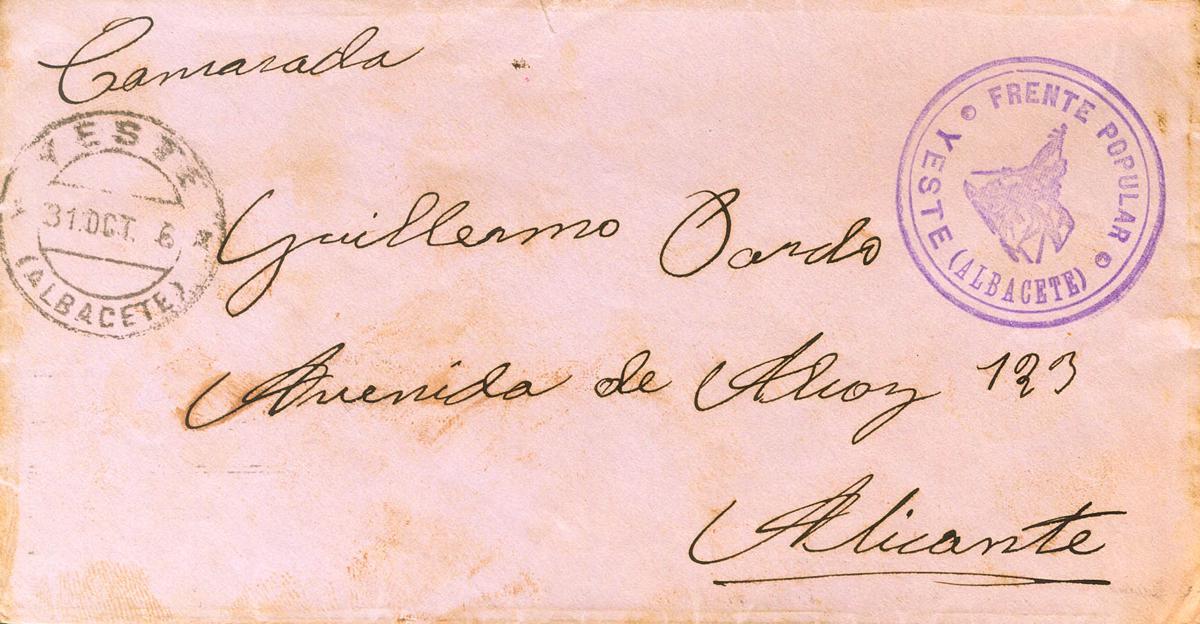 Camarada
YESTE
31.OCT. 6
(ALBACETE)
FRENTE POPULAR
YESTE (ALBACETE)
Guillermo Pardo
Avenida de Alcoy 123
Alicante